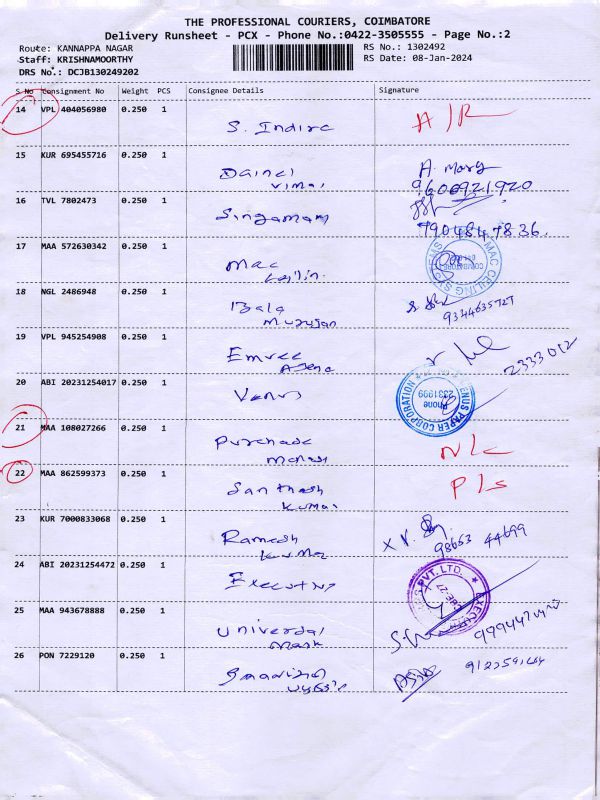 THE PROFESSIONAL COURIERS, COIMBATORE
Delivery Runsheet - PCX - Phone No.:0422-3505555 - Page No.:2
Route: KANNAPPA NAGAR
RS No.: 1302492
Staff: KRISHNAMOORTHY
RS Date: 08-Jan-2024
DRS No.: DCJB130249202
S No Consignment No Weight PCS Consignee Details Signature
14 VPL 404056980 0.250 1
S. Indira A/R
15 KUR 695455716 0.250 1
Dainel A. Mary
Vimal 9600921920
16 TVL 7802473 0.250 1
Singamam 7904847836.
17 MAA 572630342 0.250 1
Mac
MAC CEILING SYSTEMS
18 NGL 2486948 0.250 1
Bala
Murugan 9344635727
19 VPL 945254908 0.250 1
Emree 2333012
20 ABI 20231254017 0.250 1
Venus
VENUS PAPER CORPORATION
Phone
2331999
21 MAA 108027266 0.250 1
Purchase N/c
22 MAA 862599373 0.250 1
Santhosh P/s
Kumar
23 KUR 7000833068 0.250 1
Ramesh
Kumar 98653 44699
24 ABI 20231254472 0.250 1
Executive
PVT. LTD.
25 MAA 943678888 0.250 1
Universal
Mask
26 PON 7229120 0.250 1